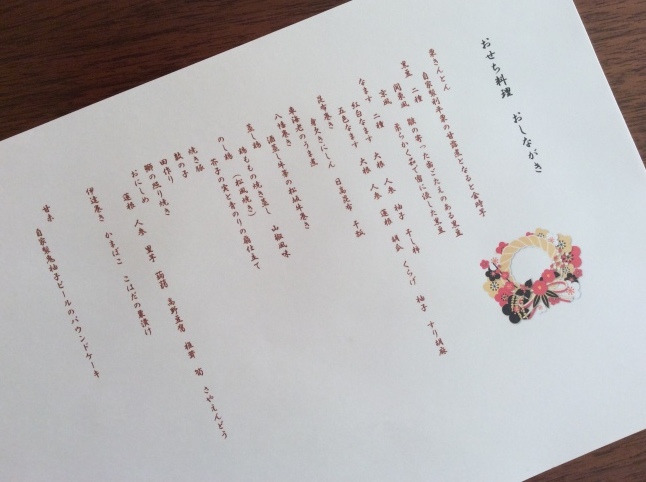 おせち料理　おしながき
栗きんとん　自家製利平栗の甘露煮となると金時芋
黒豆　二種　皺の寄った歯ごたえのある黒豆
関東風
京風　柔らかく茹で蜜に浸した黒豆
なます　二種
紅白なます　大根　人参　柚子　干し柿
五色なます　大根　人参　蓮根　胡瓜　くらげ　柚子　すり胡麻
昆布巻き　身欠きにしん　日高昆布　干瓢
車海老のうま煮
八幡巻き　酒蒸し牛蒡の松阪牛巻き
蒸し鶏　鶏ももの焼き蒸し　山椒風味
のし鶏　（松風焼き）
芥子の実と青のりの扇仕立て
焼き豚
数の子
田作り
鰤の照り焼き
おにしめ　蓮根　人参　里芋　蒟蒻　高野豆腐　椎茸　筍　さやえんどう
伊達巻き　かまぼこ　こはだの粟漬け
甘味　自家製鬼柚子ピールのパウンドケーキ